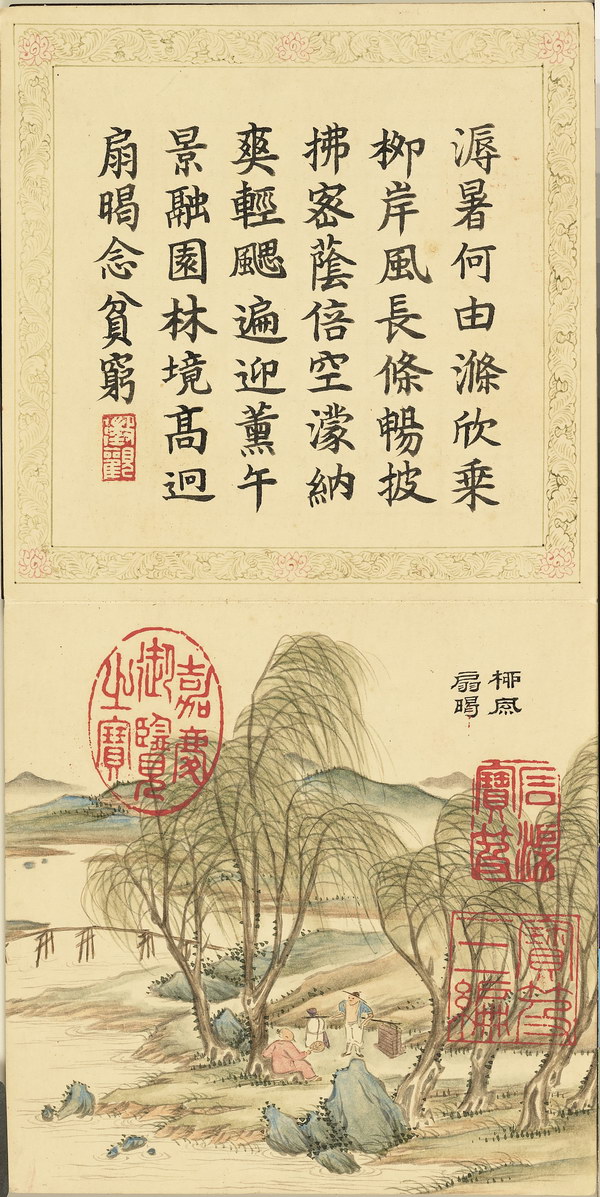 溽暑何由滌欣乘
栁岸風長條暢披
拂宻蔭倍空濛納
爽輕颸遍迎薰午
景融園林境髙迥
扇暍念貧窮
柳風
扇暍
嘉慶
御覽
之寶
石渠
寶笈
寶笈
三編